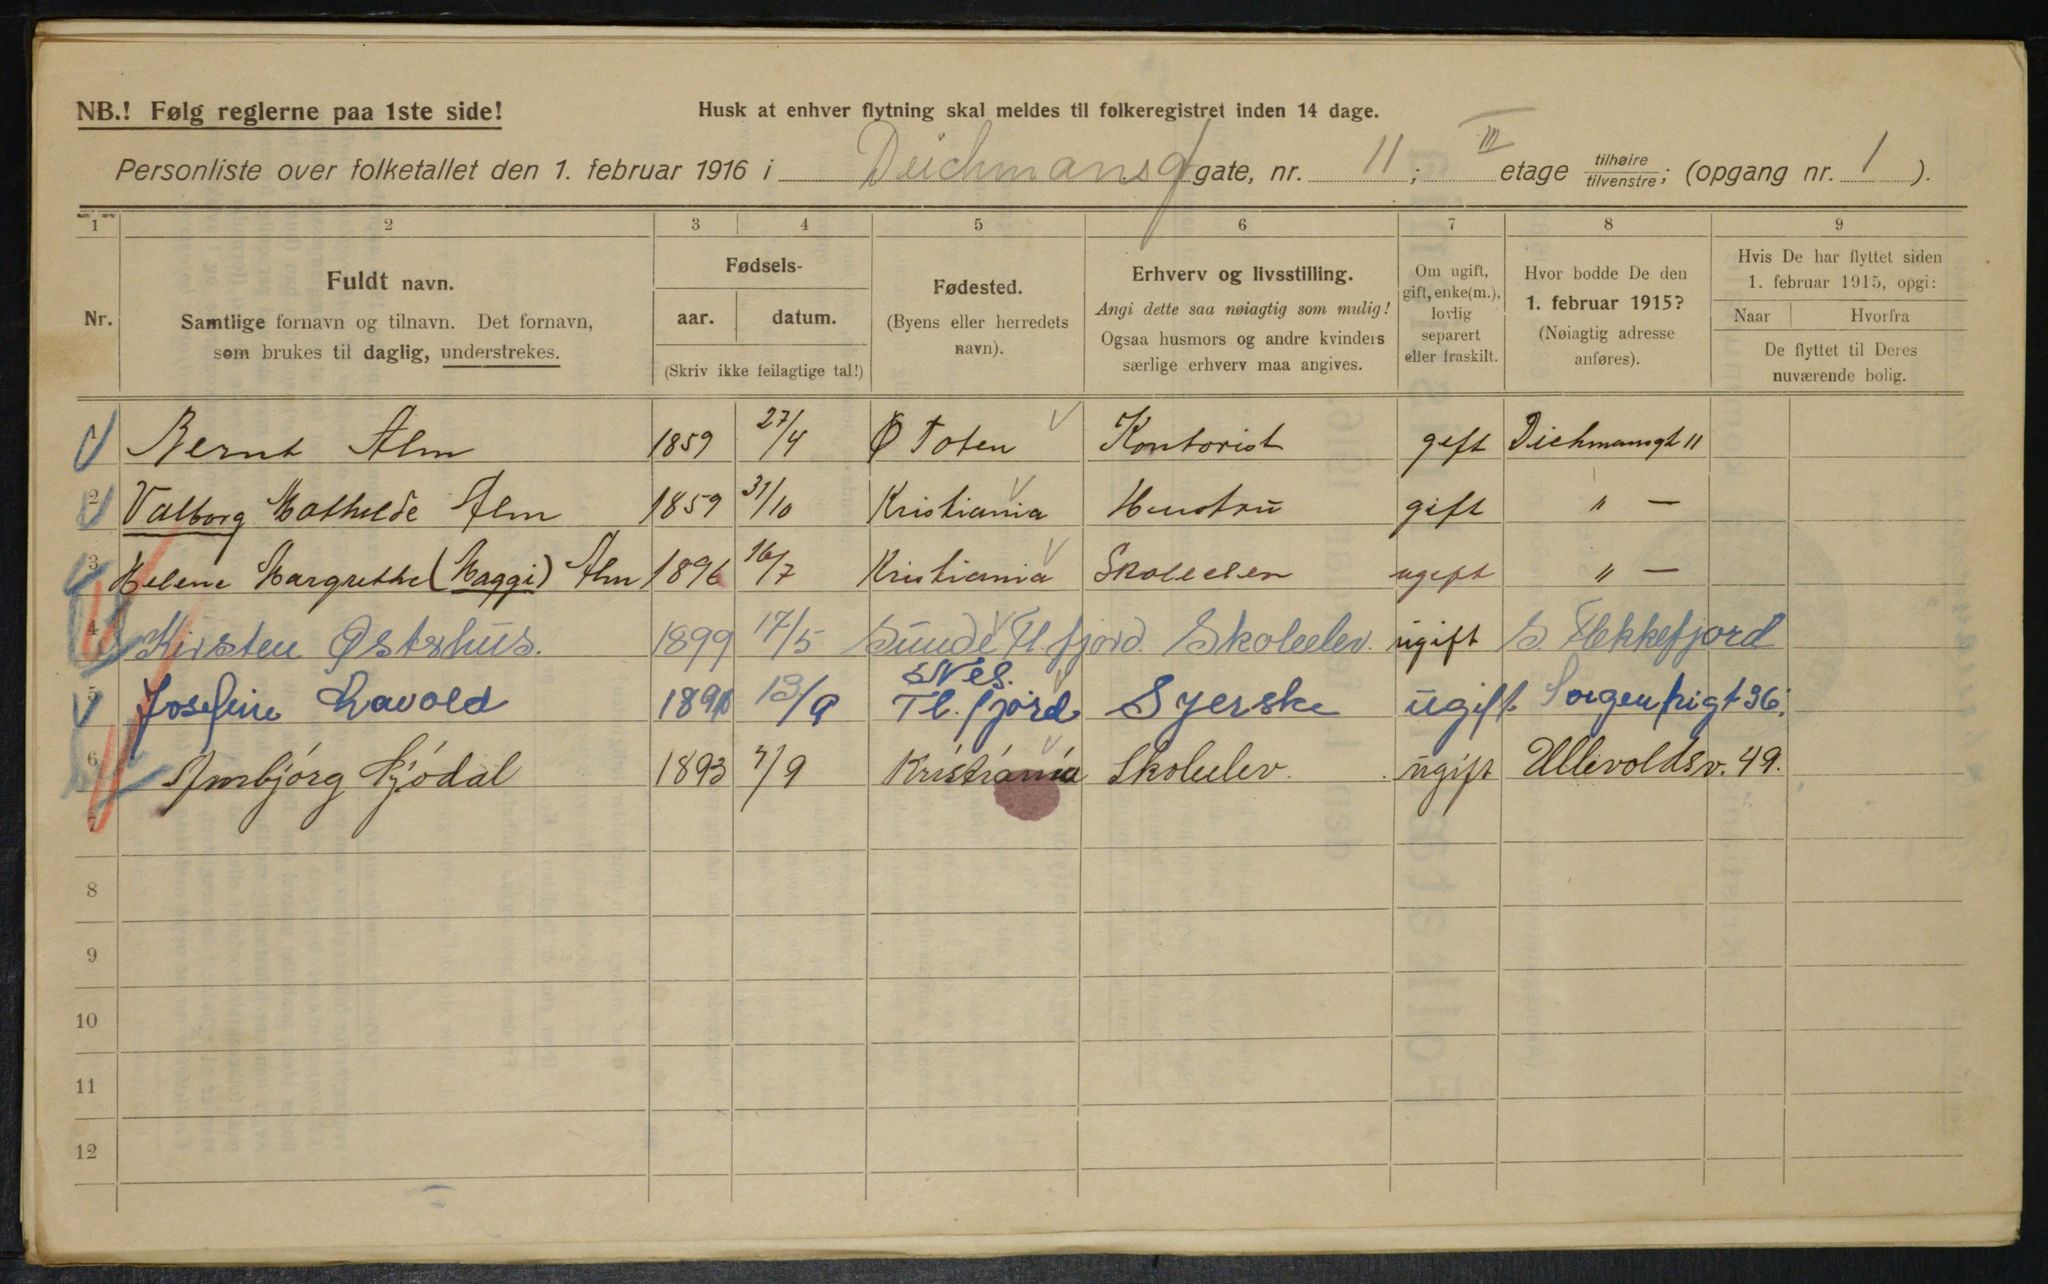 NB.! Følg reglerne paa 1ste side!
Husk at enhver flytning skal meldes til folkeregistret inden 14 dage.
Personliste over folketallet den 1. februar 1916 i Deichmansg gate, nr. 11; III etage tilhøire/tilvenstre; (opgang nr. 1).
1 2 3 4 5 6 7 8 9
Nr.
Fuldt navn.
Samtlige fornavn og tilnavn. Det fornavn,
som brukes til daglig, understrekes.
Fødsels-
aar. datum.
(Skriv ikke feilagtige tal!)
Fødested.
(Byens eller herredets
navn).
Erhverv og livsstilling.
Angi dette saa nøiagtig som mulig!
Ogsaa husmors og andre kvinders
særlige erhverv maa angives.
Om ugift,
gift, enke(m.),
lovlig
separert
eller fraskilt.
Hvor bodde De den
1. februar 1915?
(Nøiagtig adresse
anføres).
Hvis De har flyttet siden
1. februar 1915, opgi:
Naar Hvorfra
De flyttet til Deres
nuværende bolig.
Bernt Alm 1859 27/4 Ø Toten Kontorist gift Dichmansgt 11
2 Valborg Mathilde Alm 1859 31/10 Kristiania Hustru gift " —
3 Helene Margrethe (Maggi) Alm 1896 16/7 Kristiania Skoleelev ugift " —
4 Kirsten Østshus. 1899 17/5 Sunde Fl.fjord. Skoleelev. ugift S. Flekkefjord
5 Josefine Lavold 189 13/9 Nes. Fl. fjord Syerske ugift Sorgenfrigt 36.
6 Ambjórg Gjódal 1893 7/9 Kristiania Skoleelev. ugift Ullevoldsv. 49.
7
8
9
10
11
12